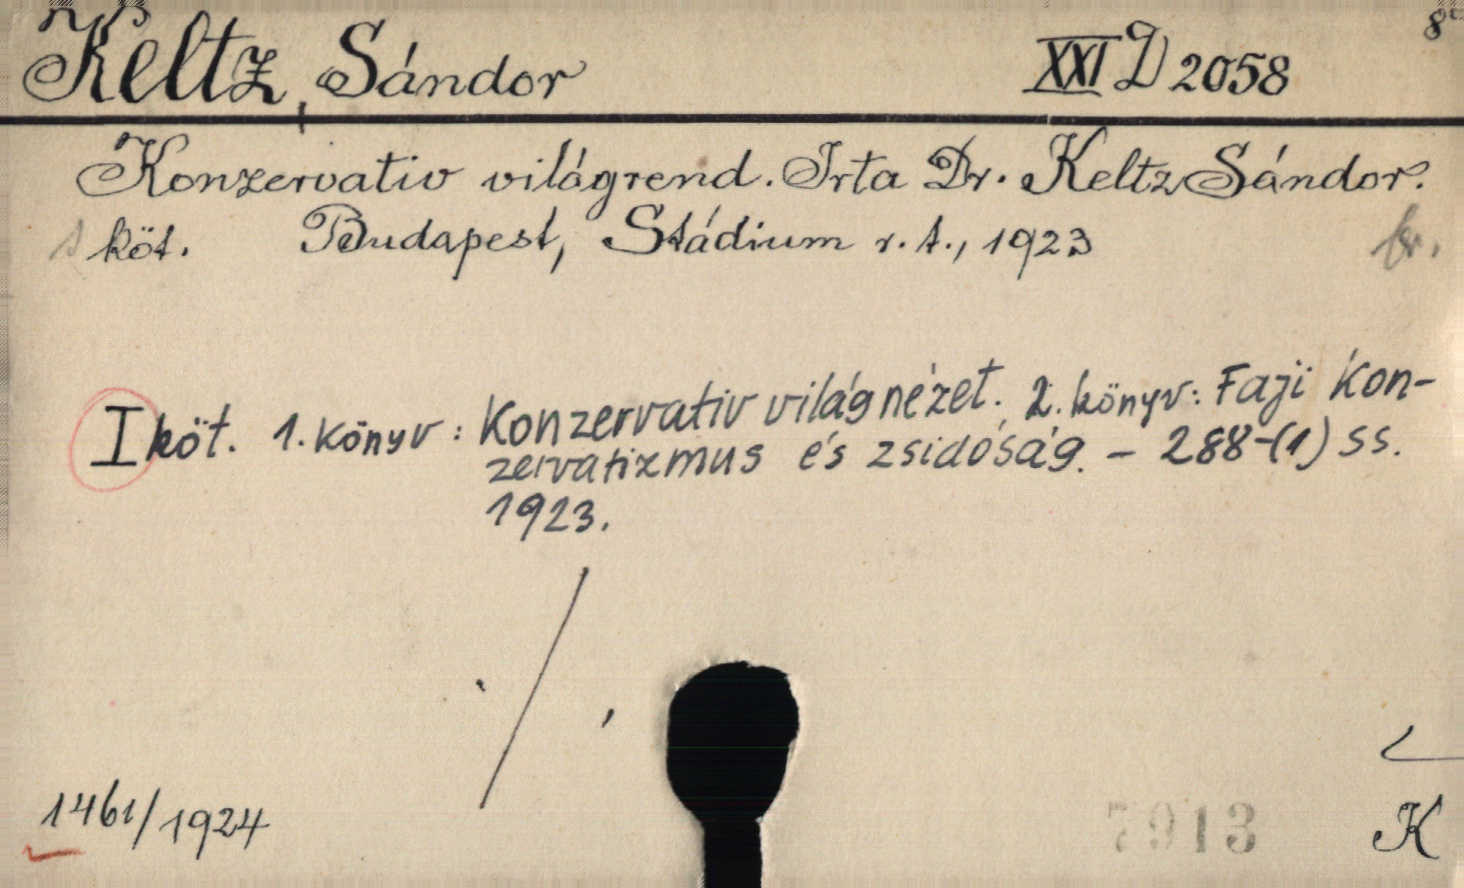 Keltz, Sándor XXI D 2058 8°
Konzervativ világrend. Irta Dr. Keltz Sándor.
köt. Budapest, Stádium r. t., 1923
I köt. 1. könyv: Konzervativ világnézet. 2. könyv: Faji kon-
zervatizmus és zsidóság. - 288-(1) ss.
1923.
1461/1924
7913 K